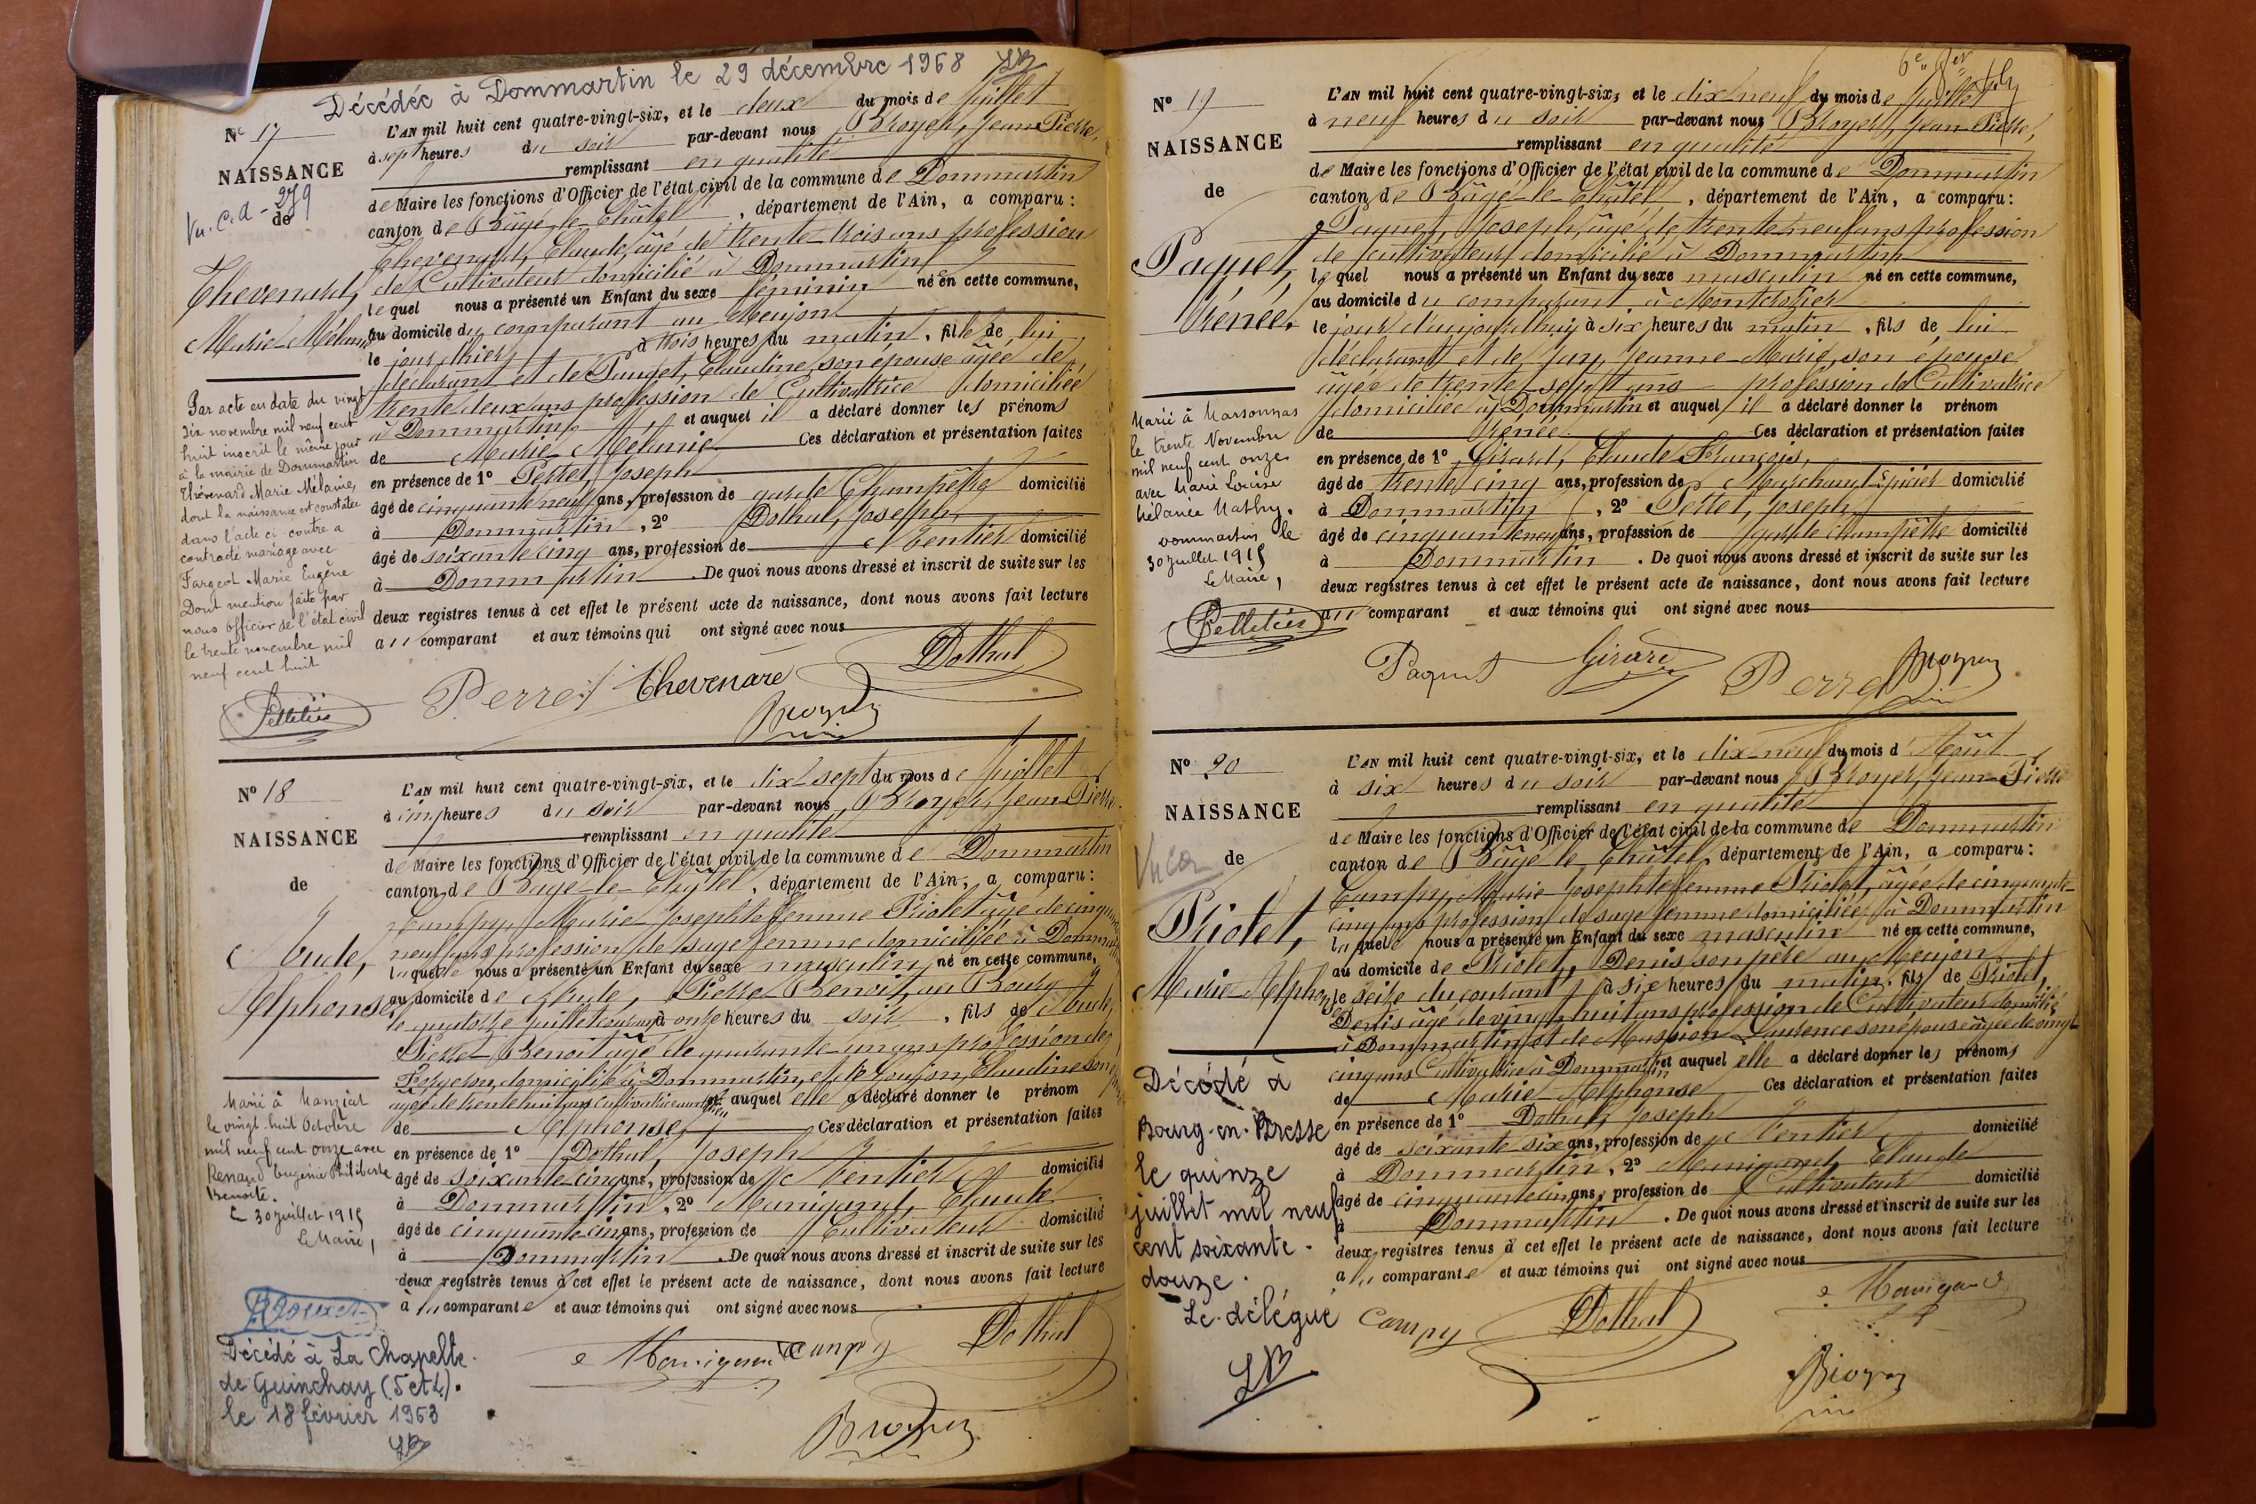 Décédée à Dommartin le 29 décembre 1968
N° 17
NAISSANCE
de
Vu. C.A - 279
Thevenard,
Marie Mélanie
L'AN mil huit cent quatre-vingt-six, et le deux du mois de Juillet
à sept heures du soir par-devant nous Broyer, Jean-Pierre,
remplissant en qualité
de Maire les fonctions d'Officier de l'état civil de la commune de Dommartin
canton de Bâgé-le-Châtel, département de l'Ain, a comparu :
Thevenard, Claude, âgé de trente-trois ans profession
de Cultivateur domicilié à Dommartin
lequel nous a présenté un Enfant du sexe féminin né en cette commune,
au domicile du comparant au Meujon
le jour d'hier à trois heures du matin, fille de lui
déclarant et de Pauget, Claudine, son épouse âgée de
trente-deux ans profession de Cultivatrice domiciliée
à Dommartin et auquel il a déclaré donner les prénoms
de Marie Mélanie Ces déclaration et présentation faites
en présence de 1° Perret, Joseph
âgé de cinquante neuf ans, profession de garde Champêtre domicilié
à Dommartin, 2° Dothal, Joseph
âgé de soixante cinq ans, profession de Rentier domicilié
à Dommartin. De quoi nous avons dressé et inscrit de suite sur les
deux registres tenus à cet effet le présent acte de naissance, dont nous avons fait lecture
au comparant et aux témoins qui ont signé avec nous
Par acte en date du vingt
six novembre mil neuf cent
huit inscrit le même jour
à la mairie de Dommartin
Thévenard Marie Mélanie,
dont la naissance est constatée
dans l'acte ci-contre a
contracté mariage avec
Fargeot Marie Eugène
Dont mention faite par
nous officier de l'état civil
le trente novembre mil
neuf cent huit
Pelletier
Perret Thevenard Dothal
Broyer
N° 18
NAISSANCE
de
Alphonse,
L'AN mil huit cent quatre-vingt-six, et le dix-sept du mois de Juillet
à cinq heures du soir par-devant nous Broyer, Jean-Pierre
remplissant en qualité
de Maire les fonctions d'Officier de l'état civil de la commune de Dommartin
canton de Bâgé-le-Châtel, département de l'Ain, a comparu :
Campy, Marie Josephte femme Priolet âgé de cinquante
neuf ans profession de sage femme domiciliée à Dommartin
laquelle nous a présenté un Enfant du sexe masculin né en cette commune,
au domicile de Pierre Benoit, au Bourg
le quatorze juillet courant à onze heures du soir, fils de
Pierre Benoit âgé de quarante un ans profession de
Forgeron, domicilié à Dommartin, et de Goujon, Claudine son
âgée de trente huit ans cultivatrice et auquel elle a déclaré donner le prénom
de Alphonse, Ces déclaration et présentation faites
en présence de 1° Dothal, Joseph
âgé de soixante cinq ans, profession de Rentier domicilié
à Dommartin, 2° Manigand, Claude
âgé de cinquante cinq ans, profession de Cultivateur domicilié
à Dommartin. De quoi nous avons dressé et inscrit de suite sur les
deux registres tenus à cet effet le présent acte de naissance, dont nous avons fait lecture
à la comparante et aux témoins qui ont signé avec nous
Marié à Manziat
le vingt-huit Octobre
mil neuf cent onze avec
Renaud Eugénie Philiberte
Benoîte.
Le 30 juillet 1915
Le Maire,
Décédé à La Chapelle-
de Guinchay (S et L).
le 18 février 1963
Manigand Campy Dothal
Broyer
N° 19
NAISSANCE
de
Paquet,
Rénée.
L'AN mil huit cent quatre-vingt-six, et le dix-neuf du mois de Juillet
à neuf heures du soir par-devant nous Broyer, Jean-Pierre,
remplissant en qualité
de Maire les fonctions d'Officier de l'état civil de la commune de Dommartin
canton de Bâgé-le-Châtel, département de l'Ain, a comparu :
Paquet, Joseph, âgé de trente neuf ans profession
de cultivateur domicilié à Dommartin
lequel nous a présenté un Enfant du sexe masculin né en cette commune,
au domicile du comparant à Montcrozier
le jour d'aujourd'hui à six heures du matin, fils de lui
déclarant et de Jary, Jeanne-Marie, son épouse
âgée de trente-sept ans profession de Cultivatrice
domiciliée à Dommartin et auquel il a déclaré donner le prénom
de Rénée Ces déclaration et présentation faites
en présence de 1° Girard, Claude François,
âgé de trente cinq ans, profession de Marchand Epicier domicilié
à Dommartin, 2° Perret, Joseph
âgé de cinquante neuf ans, profession de garde champêtre domicilié
à Dommartin. De quoi nous avons dressé et inscrit de suite sur les
deux registres tenus à cet effet le présent acte de naissance, dont nous avons fait lecture
au comparant et aux témoins qui ont signé avec nous
Marié à Marsonnas
le trente Novembre
mil neuf cent onze
avec Marie Louise
Mélanie Mathy.
Dommartin le
30 juillet 1915
Le Maire,
Pelletier
Paquet Girard Perret Broyer
N° 20
NAISSANCE
de
Priolet,
Marie Alphonse
L'AN mil huit cent quatre-vingt-six, et le dix-neuf du mois d'Août
à six heures du soir par-devant nous Broyer, Jean-Pierre
remplissant en qualité
de Maire les fonctions d'Officier de l'état civil de la commune de Dommartin
canton de Bâgé-le-Châtel, département de l'Ain, a comparu :
Campy, Marie Josephte femme Priolet, âgée de cinquante-
cinq ans profession de sage femme domiciliée à Dommartin
laquelle nous a présenté un Enfant du sexe masculin né en cette commune,
au domicile de Priolet, Denis son père au Meujon
le seize du courant à six heures du matin, fils de Priolet,
Denis âgé de vingt huit ans profession de Cultivateur domicilié
à Dommartin et de Laurence son épouse âgée de vingt
cinq ans Cultivatrice à Dommartin et auquel elle a déclaré donner les prénoms
de Marie-Alphonse Ces déclaration et présentation faites
en présence de 1° Dothal, Joseph
âgé de soixante six ans, profession de Rentier domicilié
à Dommartin, 2° Manigand, Claude
âgé de cinquante cinq ans, profession de Cultivateur domicilié
à Dommartin. De quoi nous avons dressé et inscrit de suite sur les
deux registres tenus à cet effet le présent acte de naissance, dont nous avons fait lecture
a la comparante et aux témoins qui ont signé avec nous
Décédé à
Bourg-en-Bresse
le quinze
juillet mil neuf
cent soixante-
douze.
Le délégué
Campy Dothal Manigand
Broyer